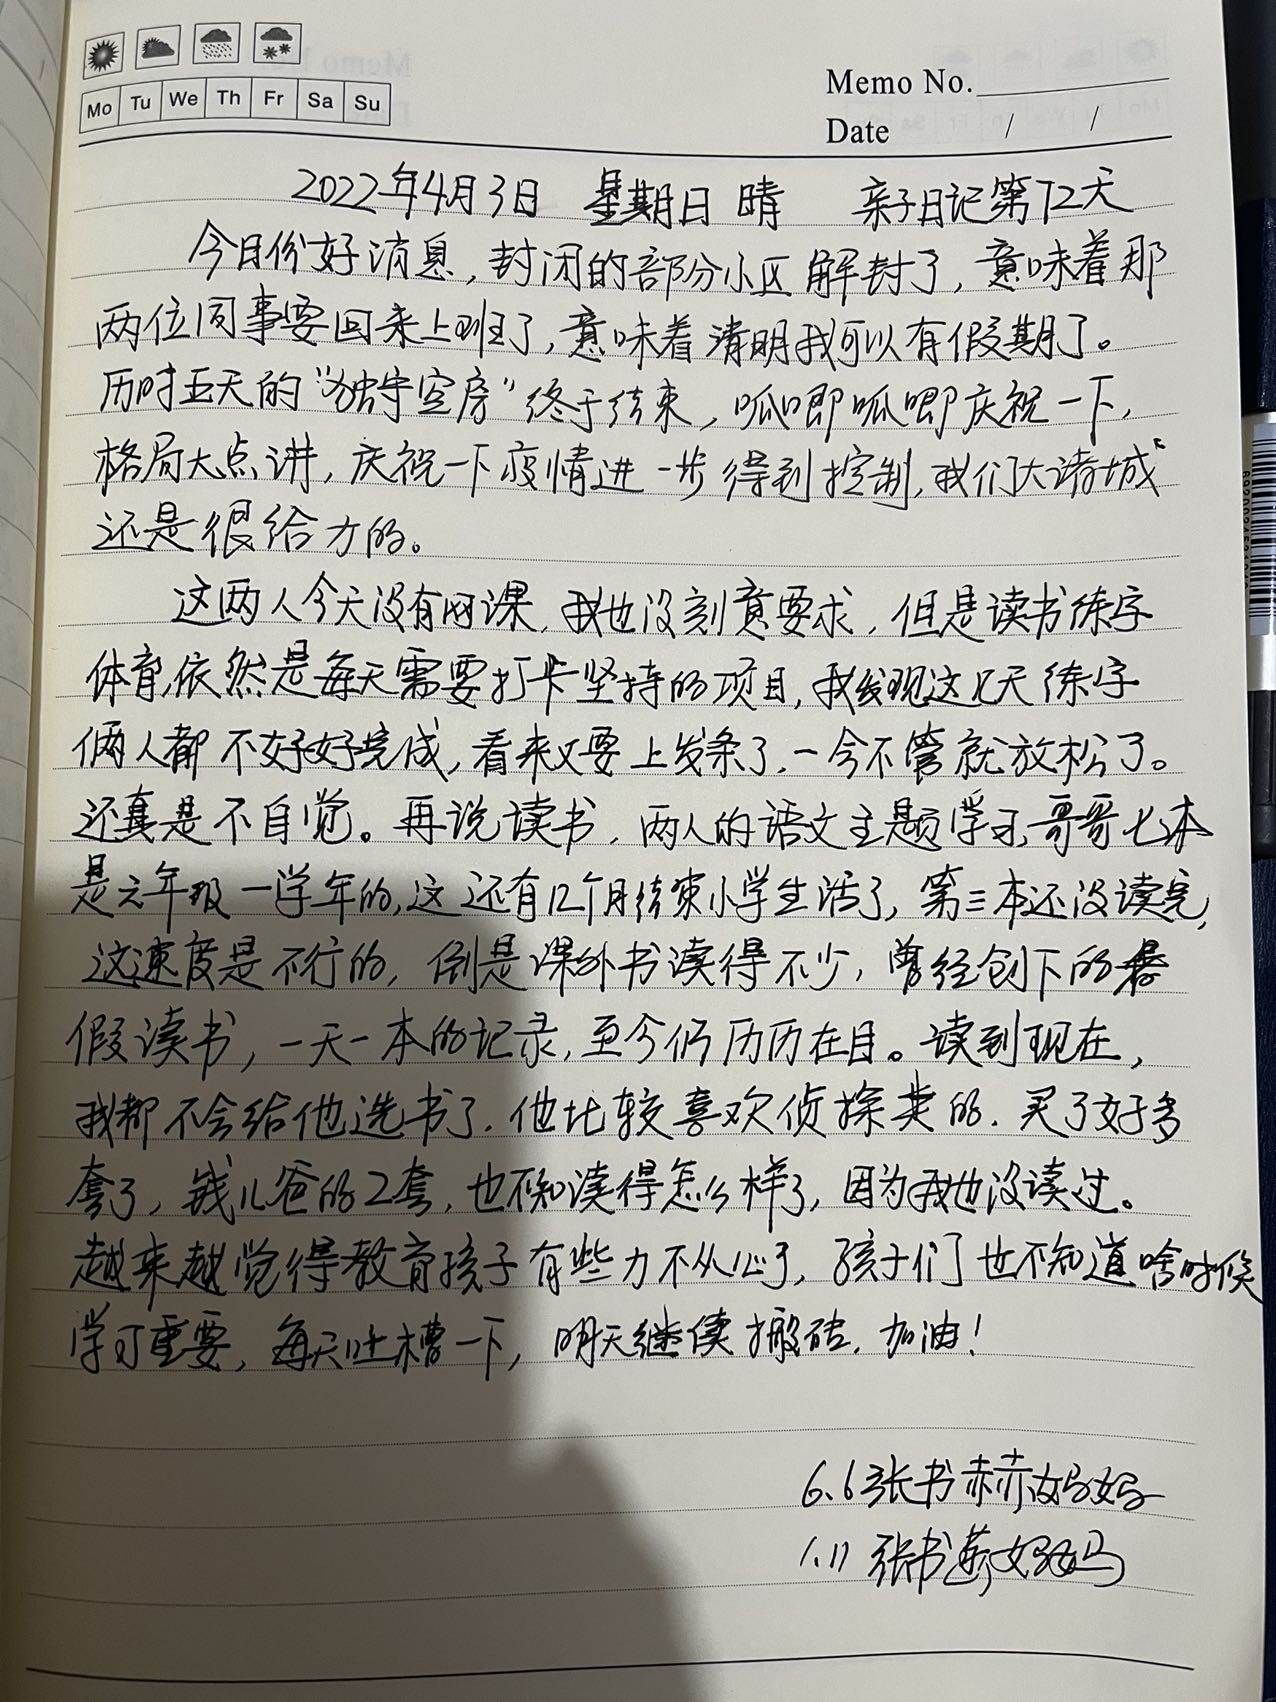 Mo Tu We Th Fr Sa Su
Memo No.
Date / /
2022年4月3日 星期日 晴 亲子日记第72天
今日份好消息，封闭的部分小区解封了，意味着那
两位同事要回来上班了，意味着清明我可以有假期了。
历时五天的“独守空房”终于结束，呱唧呱唧庆祝一下，
格局大点讲，庆祝一下疫情进一步得到控制，我们大诸城
还是很给力的。
这两人今天没有网课，我也没刻意要求，但是读书练字
体育，依然是每天需要打卡坚持的项目，我发现这几天练字
俩人都不好好完成，看来又要上发条了，一今不管就放松了。
还真是不自觉。再说读书，两人的语文主题学习，哥哥七本
是六年级一学年的，这还有几个月结束小学生活了，第三本还没读完，
这速度是不行的，倒是课外书读得不少，曾经创下的暑
假读书，一天一本的记录，至今仍历历在目。读到现在，
我都不会给他选书了，他比较喜欢侦探类的，买了好多
套了，钱儿爸的2套，也不知读得怎么样了，因为我也没读过。
越来越觉得教育孩子有些力不从心了，孩子们也不知道啥时候
学习重要，每天吐槽一下，明天继续搬砖，加油！
6.6张书赫妈妈
1.11 张书妈妈